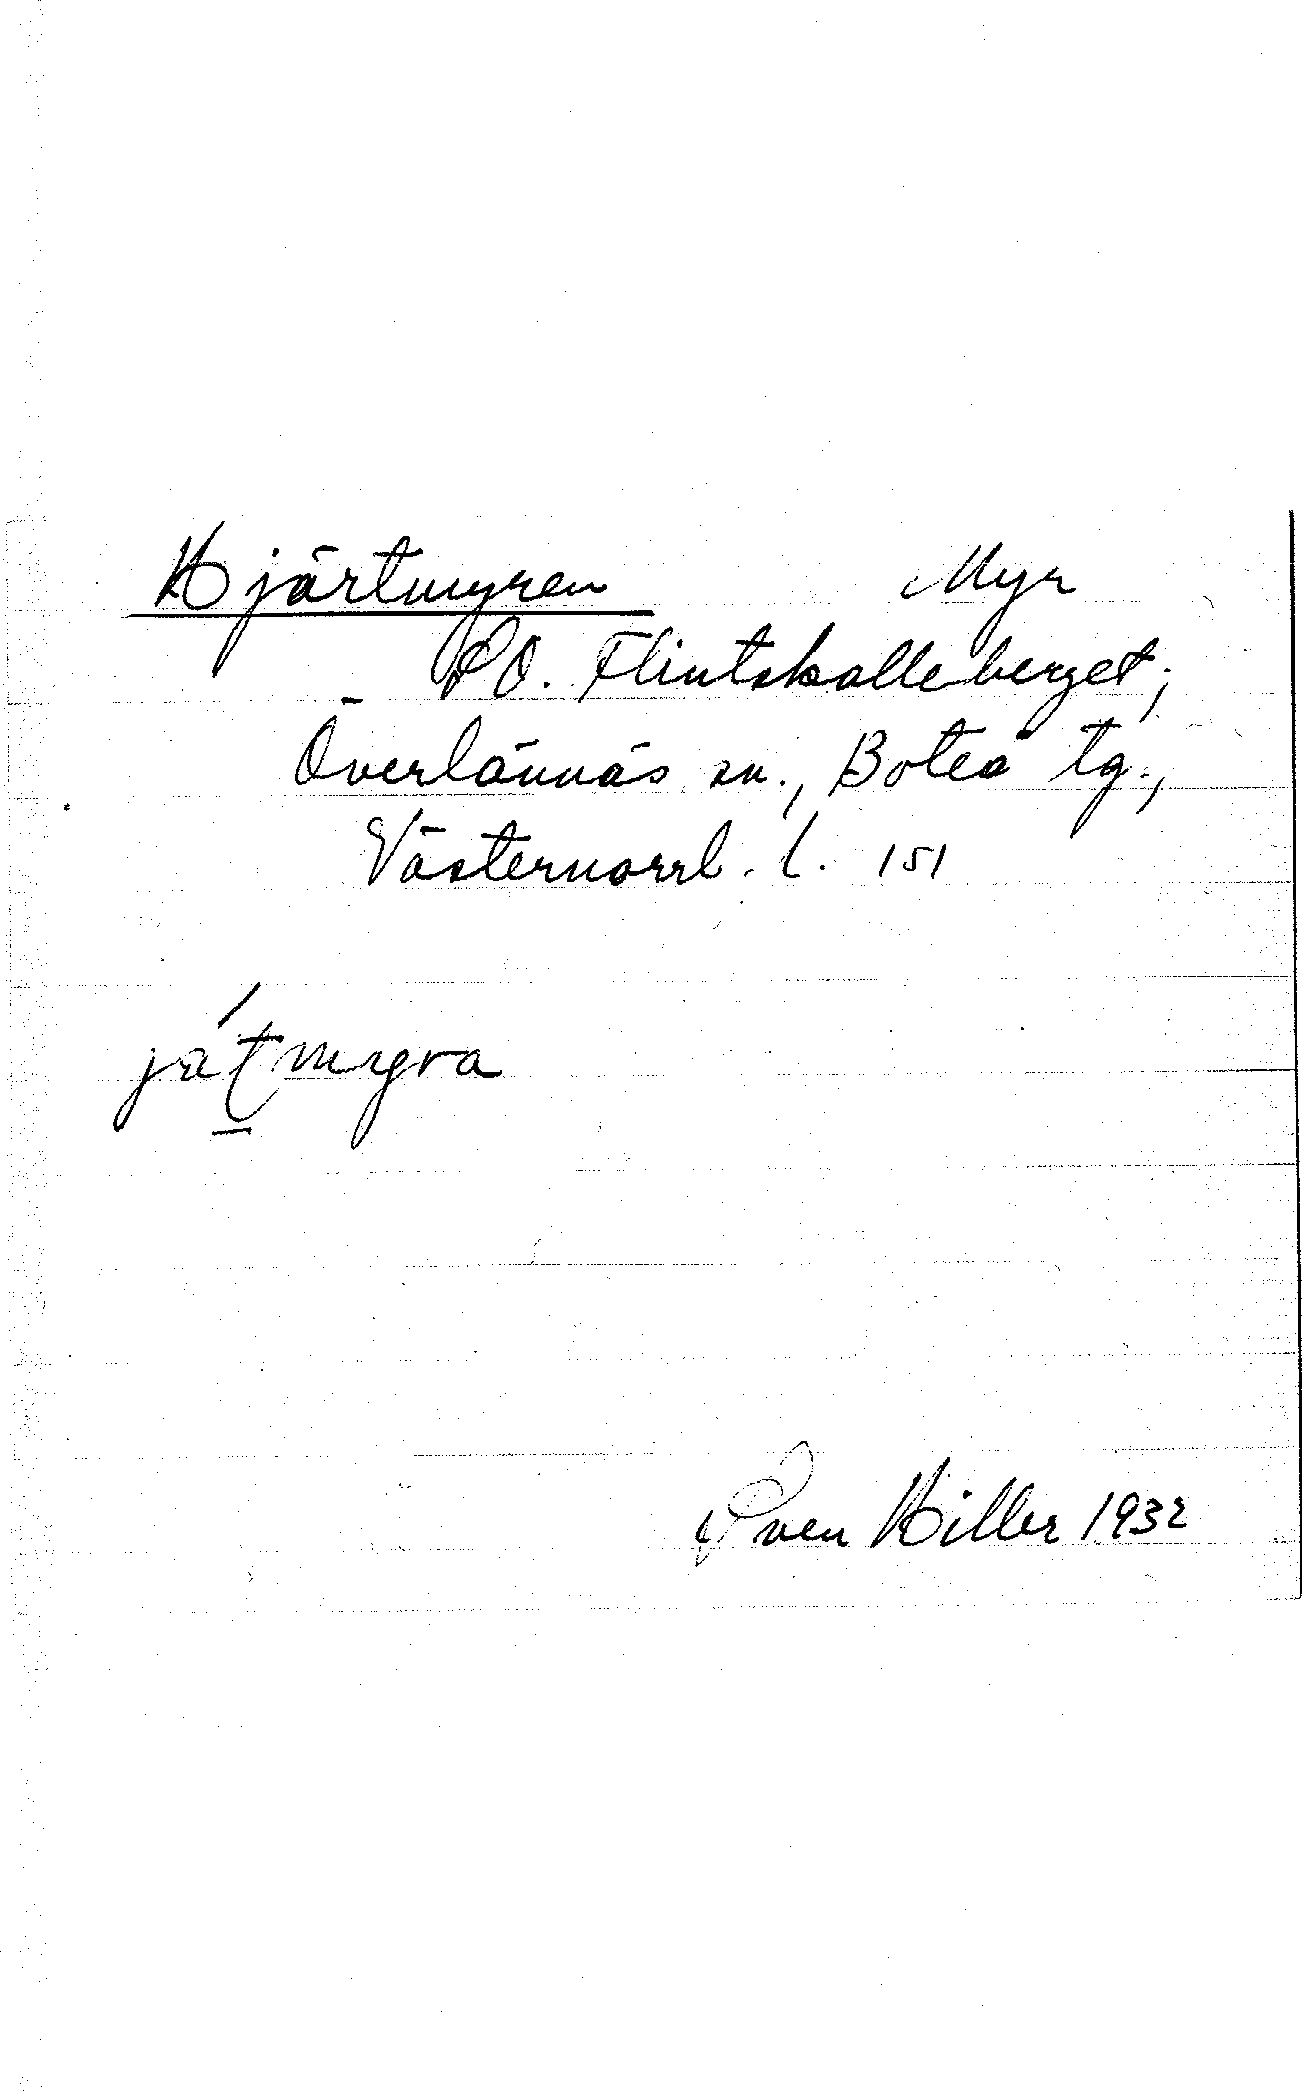 Hjärtmyren Myr
SO. Flintskalleberget;
Överlännäs sn., Boteå tg.,
Västernorrl. l. 151
játmyra
Sven Hiller 1932